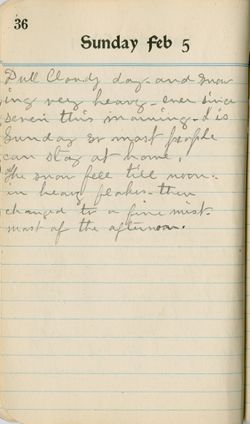 36
Sunday Feb 5
Dull Cloudy day - and snow
ing very heavy - ever since
seven this morning - it is
Sunday so most people
can stay at home.
The snow fell till noon -
in heavy flakes - then
changed to a fine mist -
most of the afternoon.